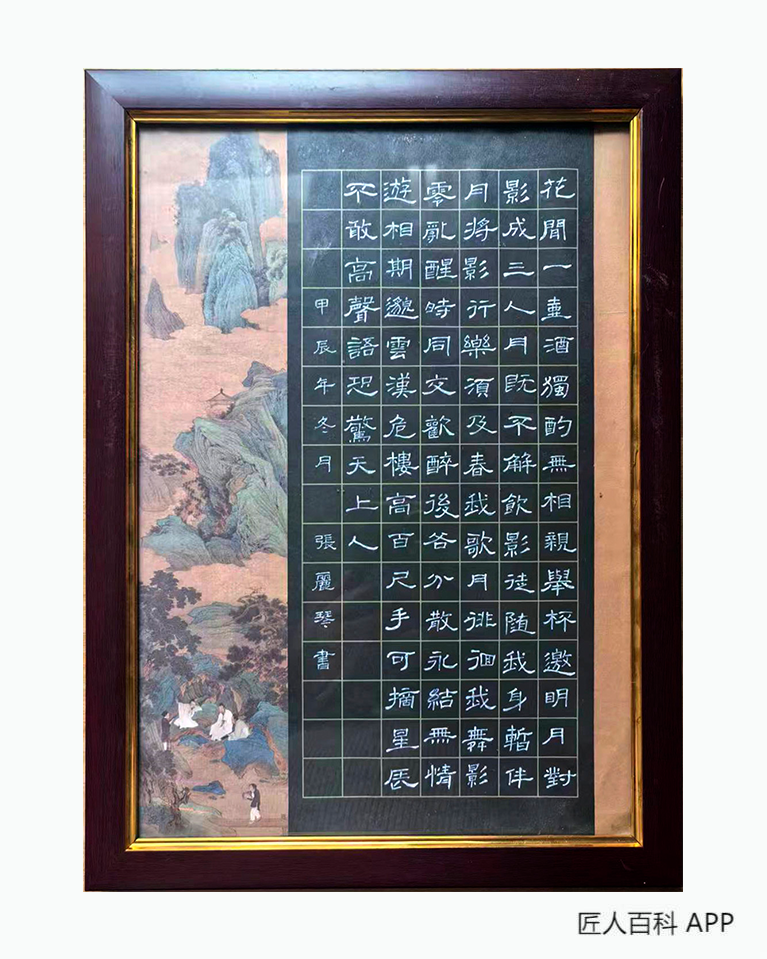 花間一壺酒獨酌無相親舉杯邀明月對
影成三人月既不解飲影徒随我身暫伴
月將影行樂須及春我歌月徘徊我舞影
零亂醒時同交歡醉後各分散永結無情
遊相期邈雲漢危樓高百尺手可摘星辰
不敢高聲語恐驚天上人
甲辰年冬月 張麗琴書
匠人百科 APP